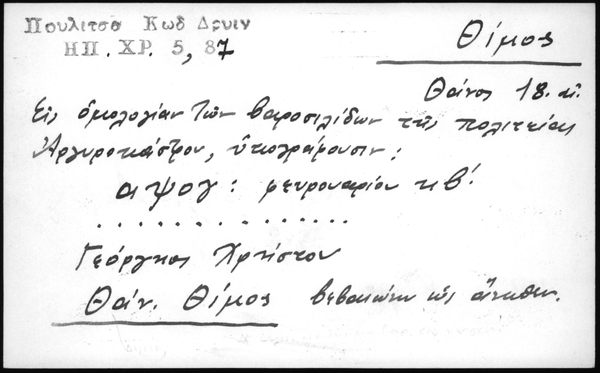 Πουλιτσα Κωδ Δρυιν
ΗΠ. ΧΡ. 5, 87
Θίμος
Θάνος 18. αἰ.
Εἰς ὁμολογίαν τῶν βαροσιλίδων τῆς πολιτείας
Ἀργυροκάστρου, ὑπογράφουσιν:
αψογ: φευρουαρίου κβ'.
. . . . . . . . . . . . . . .
Γεόργηος Χρήστου
Θάν. Θίμος βεβαιώνω ὡς ἄνωθεν.